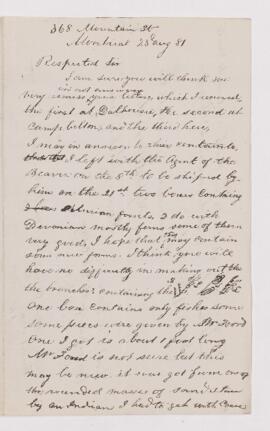 368 Mountain St
Montreal 23 Aug 81
Respected Sir
I am sure you will think me
very remiss in not answering your letters, which I received,
the first at Dalhousie, the second at
Campbellton, and the third here,
I may in answer to
I left with the Agent of the
Beaver on the 8th to be shipped by
him on the 21st two boxes containg
Silurian fossils, 2 do with
Devonian mostly ferns some of them
very good, I hope that may contain
some new forms. I think you will
have no difficulty in making out the
the branches containing the
One box contains only fishes some
some pieces were given by Mr Foord
One I got is about 1 foot long
Mr Foord is not sure but this
may be new. it was got from one of
the rounded masses of
by an Indian I had to